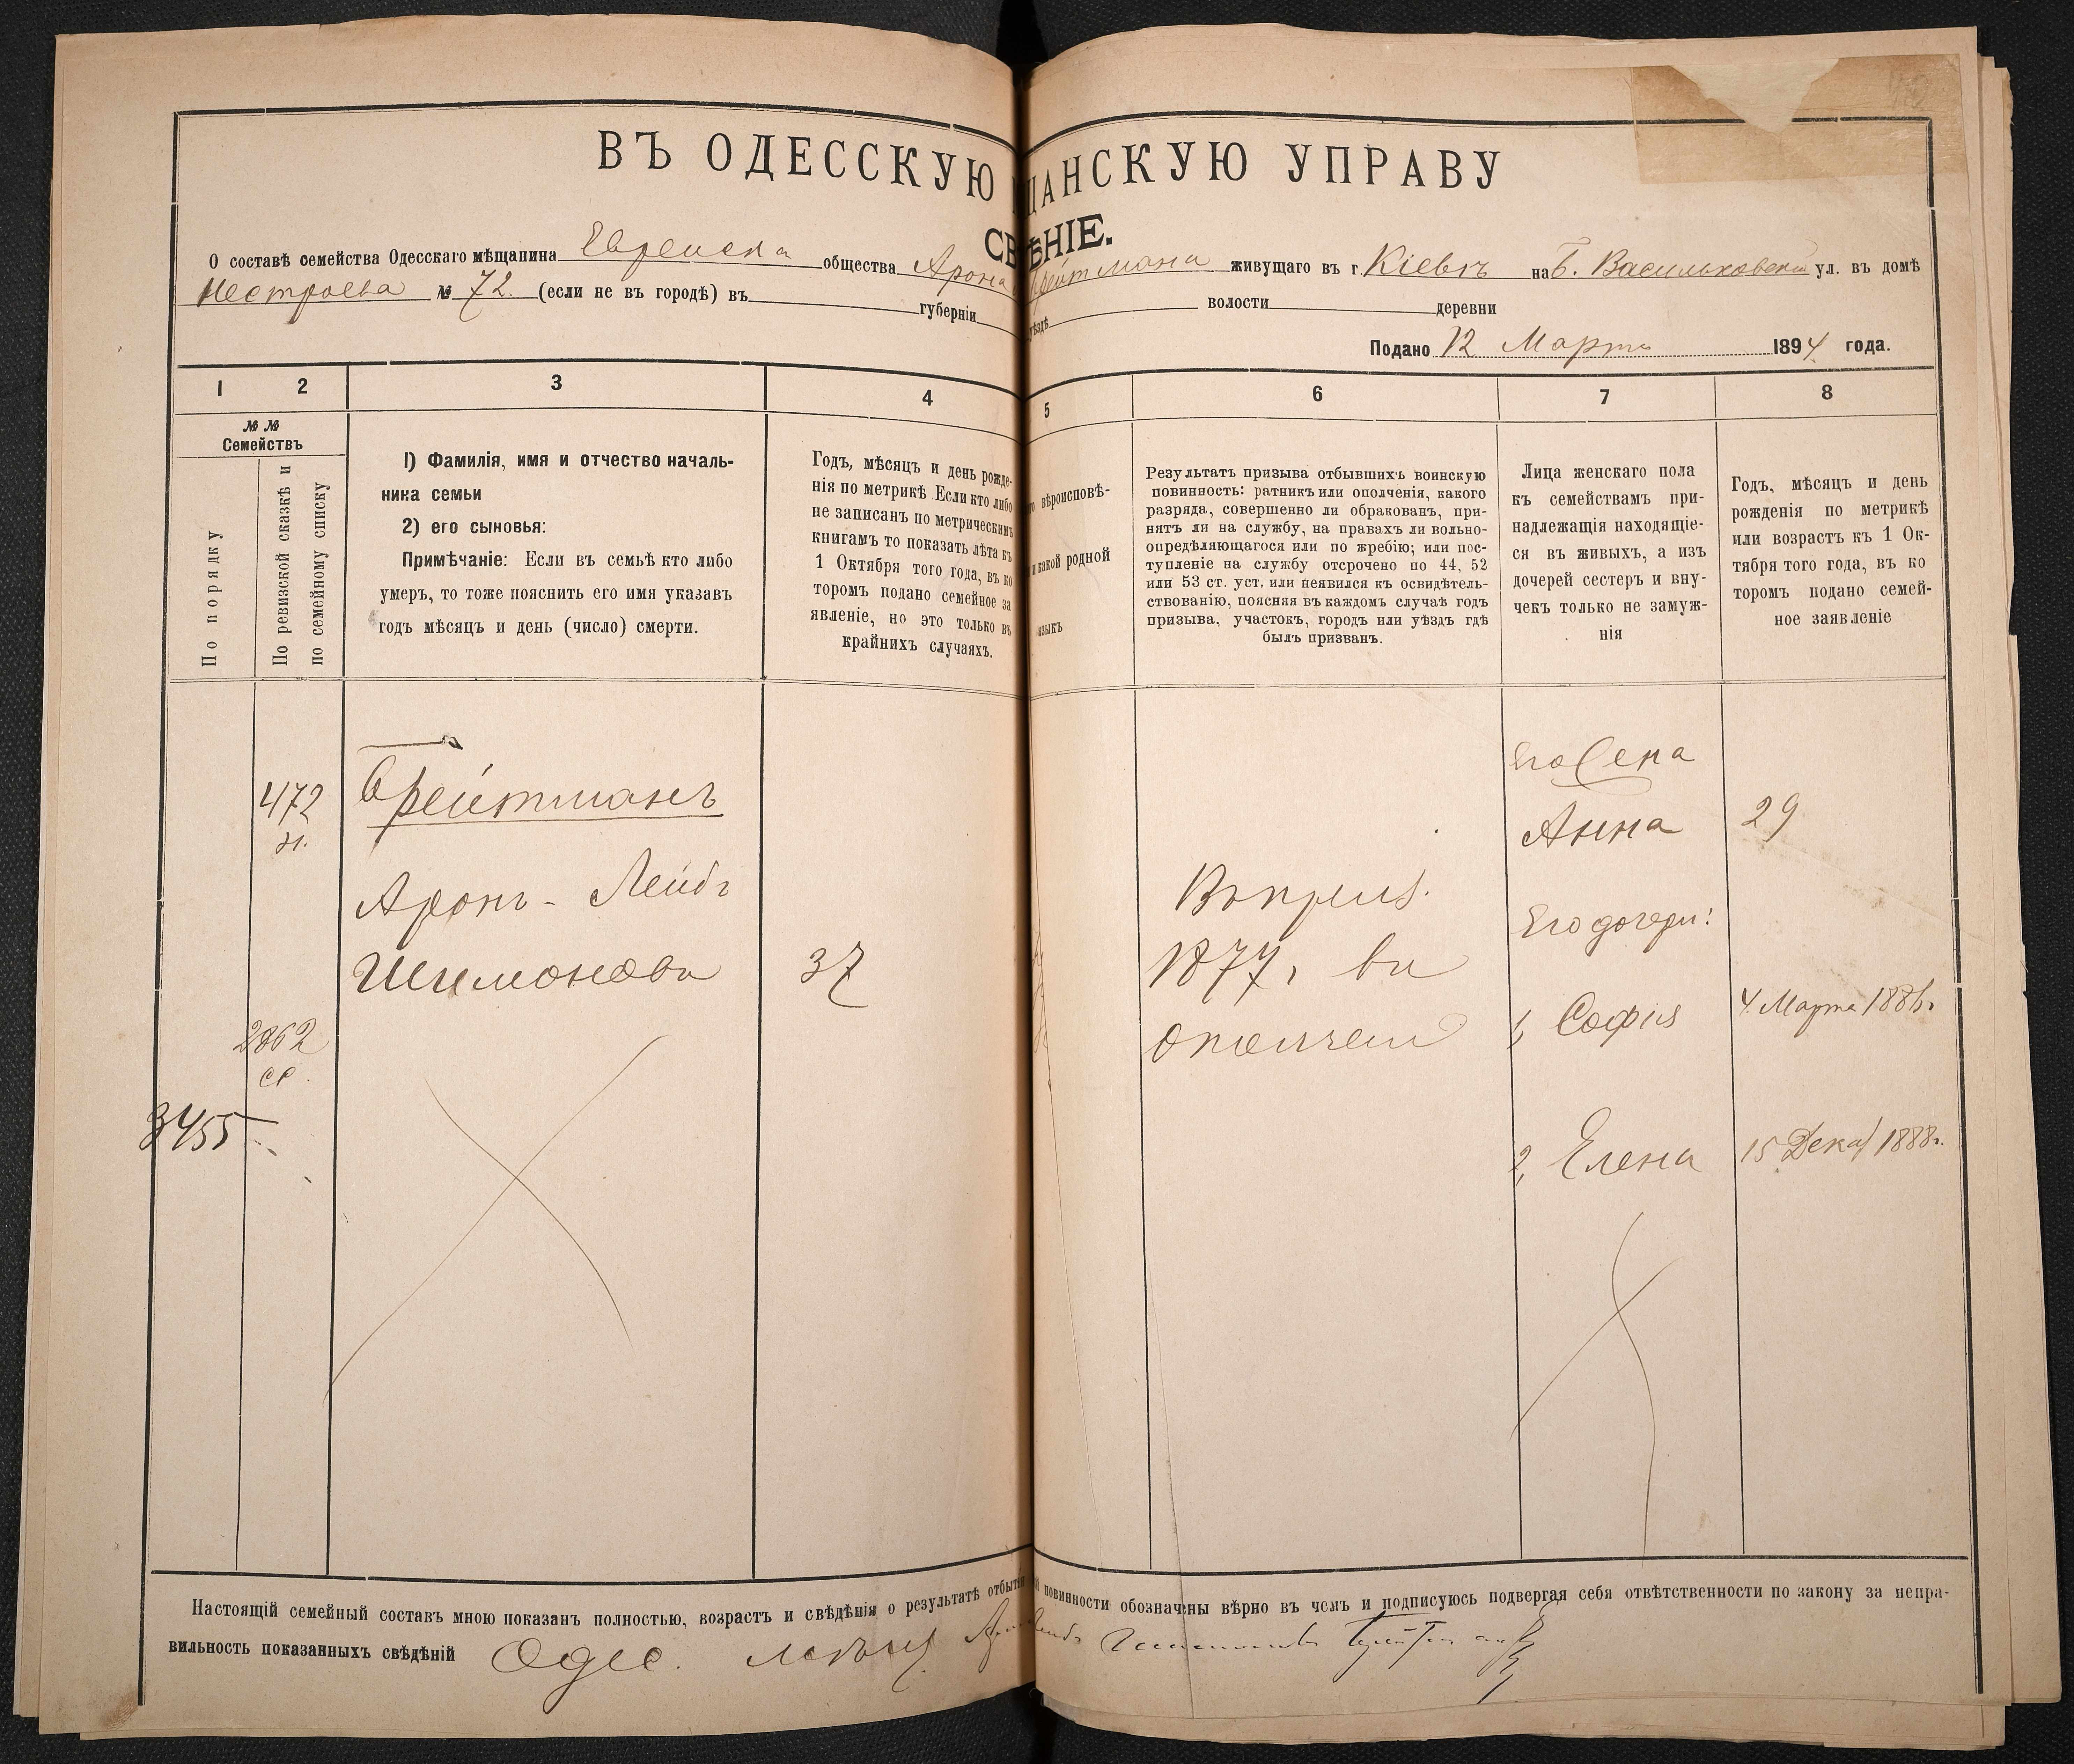 ВЪ ОДЕССКУЮ ЩАНСКУЮ УПРАВУ
СВѢНІЕ.
О составѣ семейства Одесскаго мѣщанина Еврейска общества Арона Брейтмана живущаго въ г. Кіевѣ на Б. Васильковской ул. въ домѣ
Нестроева № 72. (если не въ городѣ) въ губерніи уѣздѣ волости деревни
Подано 12 Марта 1894 года.
1 2 3 4 5 6 7 8
№ №
Семействъ
По порядку
По ревизской сказкѣ и
по семейному списку
1) Фамилія, имя и отчество началь-
ника семьи
2) его сыновья:
Примѣчаніе: Если въ семьѣ кто либо
умеръ, то тоже пояснить его имя указавъ
годъ мѣсяцъ и день (число) смерти.
Годъ, мѣсяцъ и день рожде-
нія по метрикѣ Если кто либо
не записанъ по метрическимъ
книгамъ то показать лѣта къ
1 Октября того года, въ ко
торомъ подано семейное за
явленіе, но это только въ
крайнихъ случаяхъ.
вѣроисповѣ-
какой родной
языкъ
Результатъ призыва отбывшихъ воинскую
повинность: ратникъ или ополченія, какого
разряда, совершенно ли обракованъ, при-
нятъ ли на службу, на правахъ ли вольно-
опредѣляющагося или по жребію; или пос-
тупленіе на службу отсрочено по 44, 52
или 53 ст. уст. или неявился къ освидѣтель-
ствованію, поясняя въ каждомъ случаѣ годъ
призыва, участокъ, городъ или уѣздъ гдѣ
былъ призванъ.
Лица женскаго пола
къ семействамъ при-
надлежащія находящіе-
ся въ живыхъ, а изъ
дочерей сестеръ и вну-
чекъ только не замуж-
нія
Годъ, мѣсяцъ и день
рожденія по метрикѣ
или возрастъ къ 1 Ок-
тября того года, въ ко
торомъ подано семей-
ное заявленіе
472
Брейтманъ
Аронъ - Лейбъ
Шимонова
37
2862
3455
Въ призыв.
1877 г. въ
ополчен
Его жена
Анна 29
Его дочери:
1, Софія 4 Марта 1886 г.
2, Елена 15 Декаб 1888 г.
Настоящій семейный составъ мною показанъ полностью, возрастъ и свѣдѣнія о результатѣ отбытія повинности обозначены вѣрно въ чемъ и подписуюсь подвергая себя отвѣтственности по закону за непра-
вильность показанныхъ свѣдѣній Одес. мѣщ.